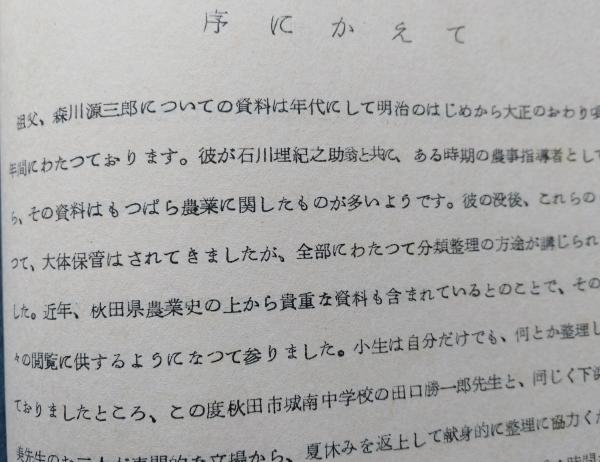 序にかえて
祖父、森川源三郎についての資料は年代にして明治のはじめから大正のおわり頃
年間にわたつております。彼が石川理紀之助翁と共に、ある時期の農事指導者として
ら、その資料はもつぱら農業に関したものが多いようです。彼の没後、これらの
つて、大体保管はされてきましたが、全部にわたつて分類整理の方途が講じられ
した。近年、秋田県農業史の上から貴重な資料も含まれているとのことで、その
々の閲覧に供するようになつて参りました。小生は自分だけでも、何とか整理し
ておりましたところ、この度秋田市城南中学校の田口勝一郎先生と、同じく下
先生のお二人が専門的な立場から、夏休みを返上して献身的に整理に協力くだ